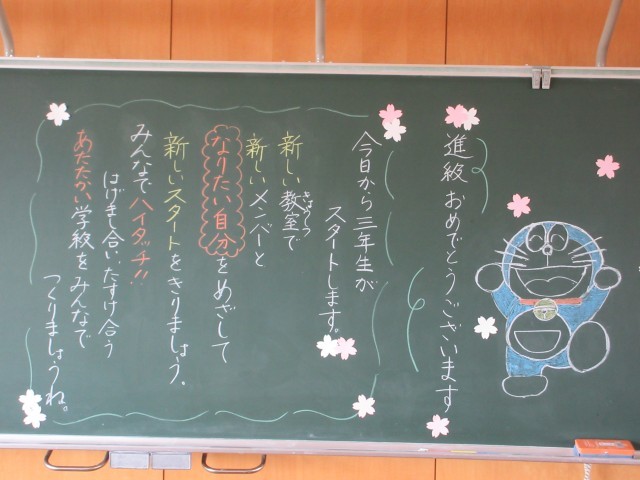 進級おめでとうございます
今日から三年生が
スタートします。
新しい教室で
きょうしつ
新しいメンバーと
なりたい自分をめざして
新しいスタートをきりましょう。
みんなでハイタッチ!!
はげまし合い、たすけ合う
あたたかい学級をみんなで
つくりましょうね。